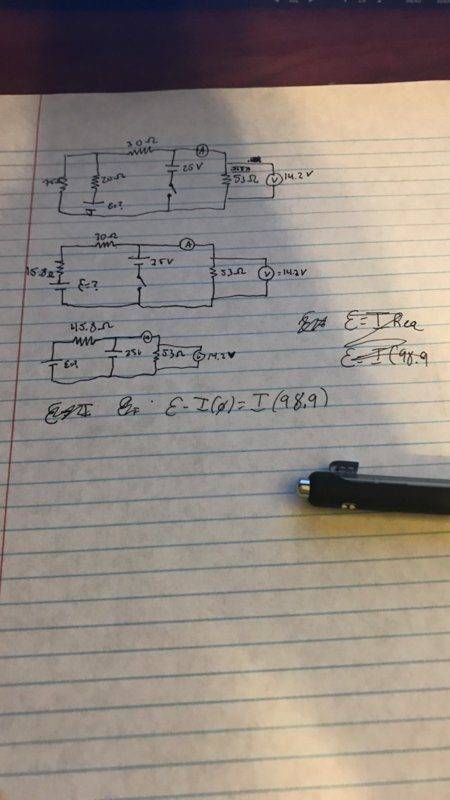 30Ω
A
25V
20Ω
53Ω
V
14.2V
ε=?
30Ω
A
25V
15.8Ω
ε=?
53Ω
V
=14.2V
45.8Ω
A
25V
53Ω
14.2V
ε=IReq
ε=I(98.9
ε-I(ø)=I(98.9)